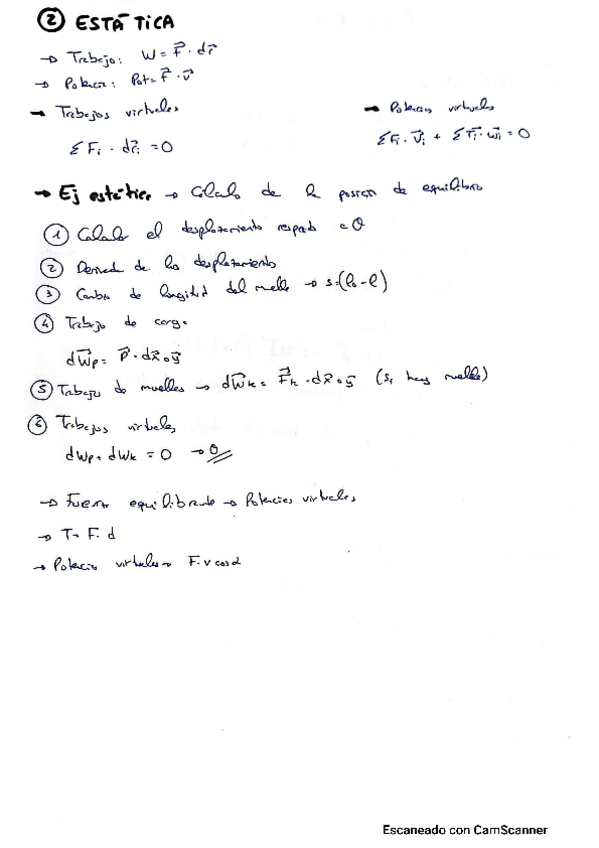 ② ESTÁTICA
→ Trabajo: W = F⃗ · dr⃗
→ Potencia: Pot = F⃗ · v⃗
→ Trabajos virtuales
Σ Fi · dr⃗i = 0
→ Potencias virtuales
Σ F⃗i · V⃗i + Σ T⃗i · w⃗i = 0
→ Ej estática → Cálculo de la posición de equilibrio
① Calcular el desplazamiento respecto a θ
② Derivada de los desplazamiento
③ Cambio de longitud del muelle → s = (l₀ - l)
④ Trabajo de carga
dW⃗p = P⃗ · dx⃗ o y⃗
⑤ Trabajo de muelles → dW⃗k = F⃗k · dx⃗ o y⃗ (Si hay muelle)
⑥ Trabajos virtuales
dWp + dWk = 0 → θ
→ Fuerza equilibrante → Potencias virtuales
→ T = F · d
→ Potencia virtuales → F · v cos α
Escaneado con CamScanner